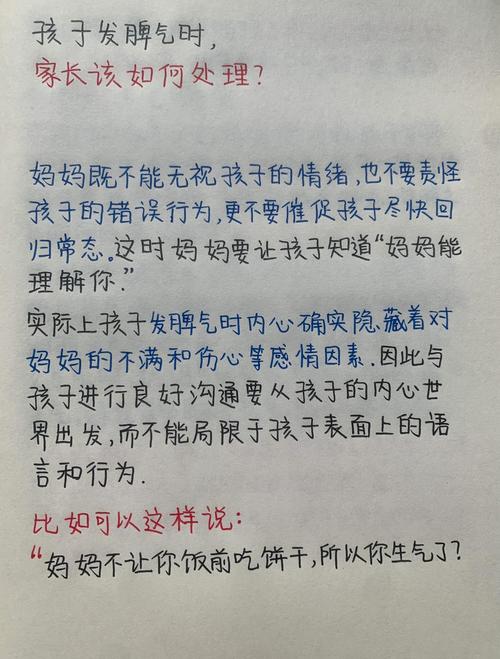 孩子发脾气时,
家长该如何处理?
妈妈既不能无视孩子的情绪,也不要责怪
孩子的错误行为,更不要催促孩子尽快回
归常态。这时妈妈要让孩子知道“妈妈能
理解你.”
实际上孩子发脾气时内心确实隐藏着对
妈妈的不满和伤心等感情因素.因此与
孩子进行良好沟通要从孩子的内心世
界出发,而不能局限于孩子表面上的语
言和行为.
比如可以这样说:
“妈妈不让你饭前吃饼干,所以你生气了?